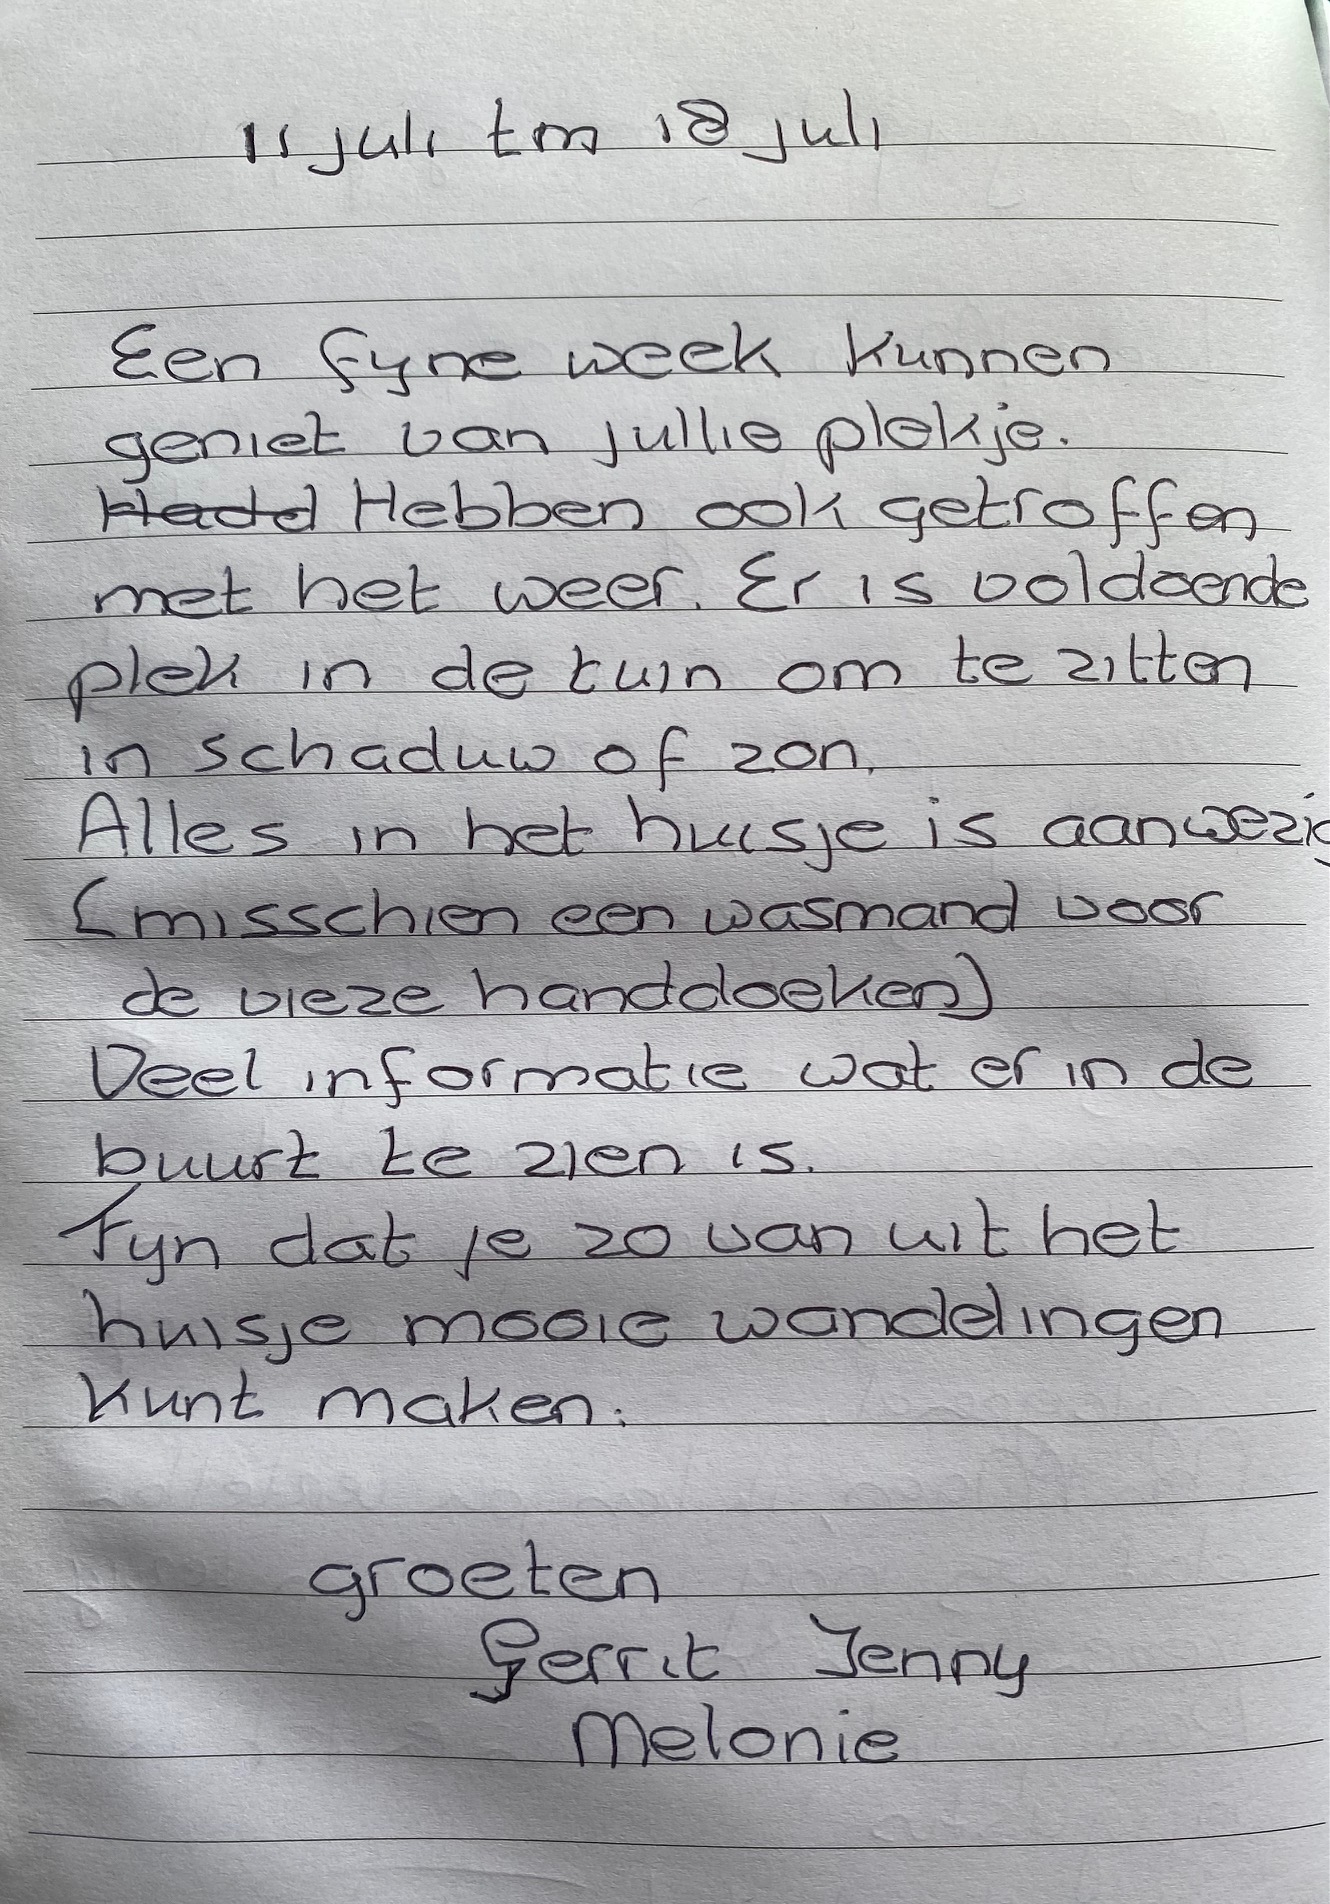 11 juli tm 18 juli
Een fyne week kunnen
geniet van jullie plekje.
Hadd Hebben ook getroffen
met het weer. Er is voldoende
plek in de tuin om te zitten
in schaduw of zon.
Alles in het huisje is aanwezig
(misschien een wasmand voor
de vieze handdoeken)
Veel informatie wat er in de
buurt te zien is.
Fyn dat je zo van uit het
huisje mooie wandelingen
kunt maken.
groeten
Gerrit Jenny
Melonie